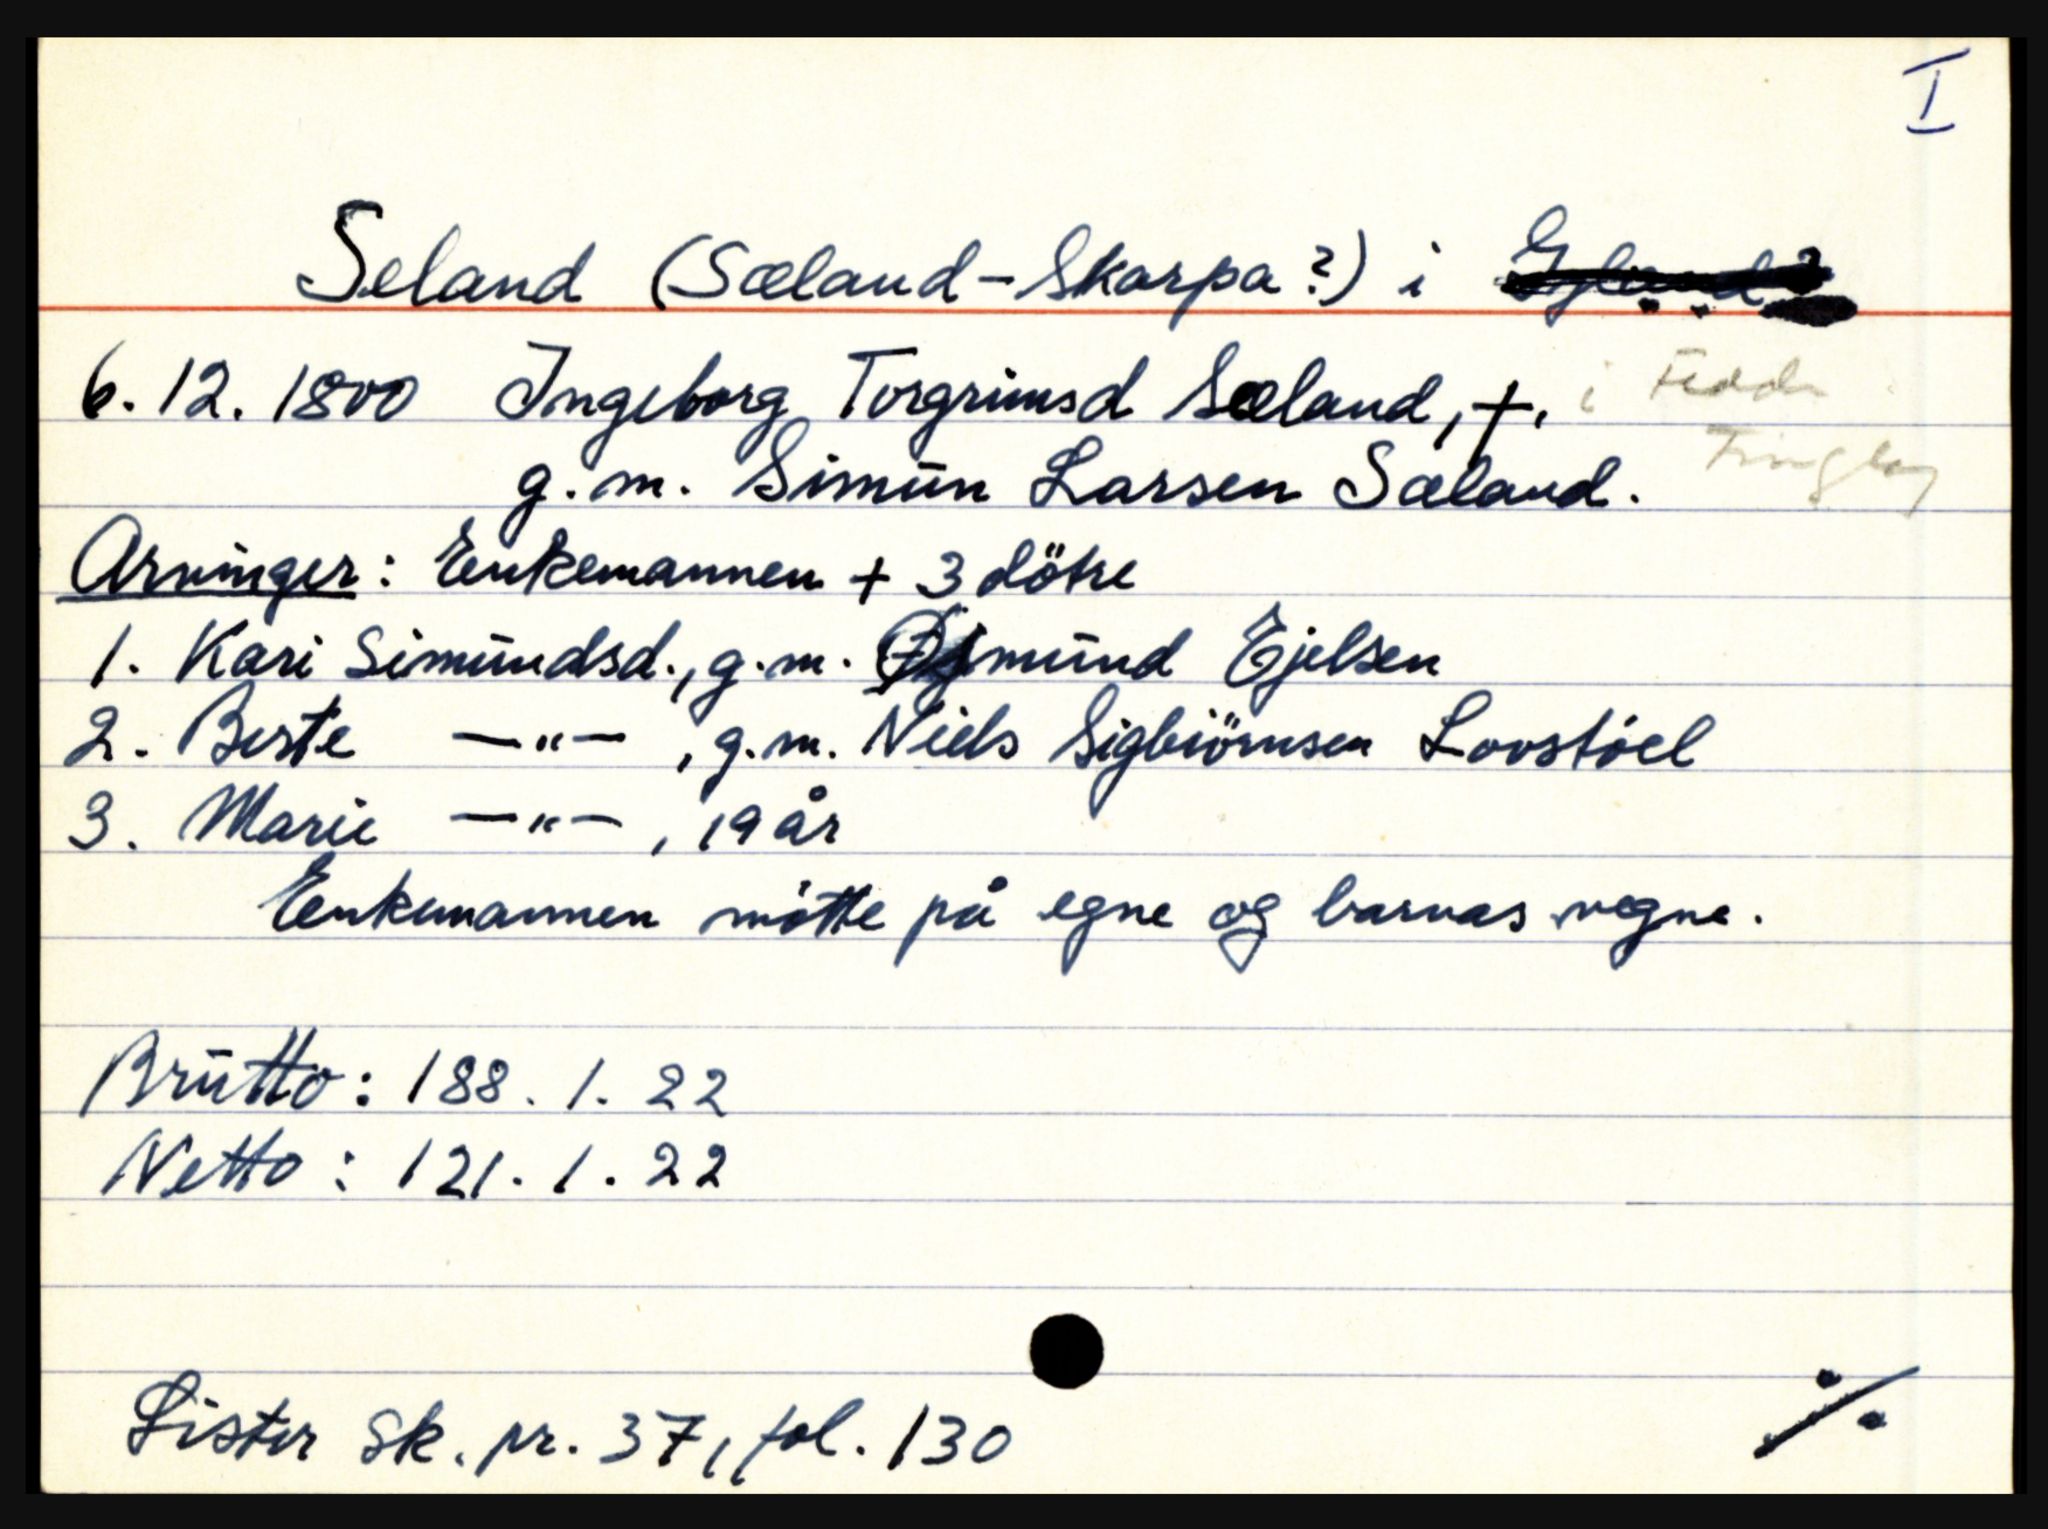 I
Seland (Sæland - Skarpa?) i Gyland?
6.12.1800 Ingeborg Torgrimsd Sæland, †. i Fedde
Tinglag
g.m. Simun Larsen Sæland.
Arvinger: Enkemannen + 3 dötre
1. Kari Simundsd., g.m. Osmund Ejelsen
2. Berte —"— , g.m. Niels Sigbiörnsen Lovstöel
3. Marie —"— , 19 år
Enkemannen mötte på egne og barnas vegne.
Brutto: 188. 1. 22
Netto: 121. 1. 22
Lister sk. pr. 37, fol. 130
·/·